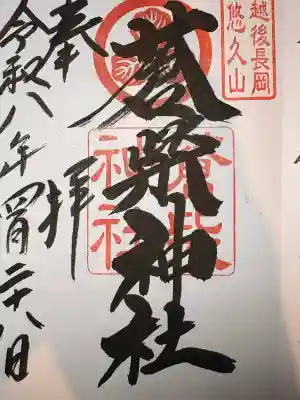 越後長岡
悠久山
蒼柴神社
蒼柴神社
奉拝
令和八年四月二十八日